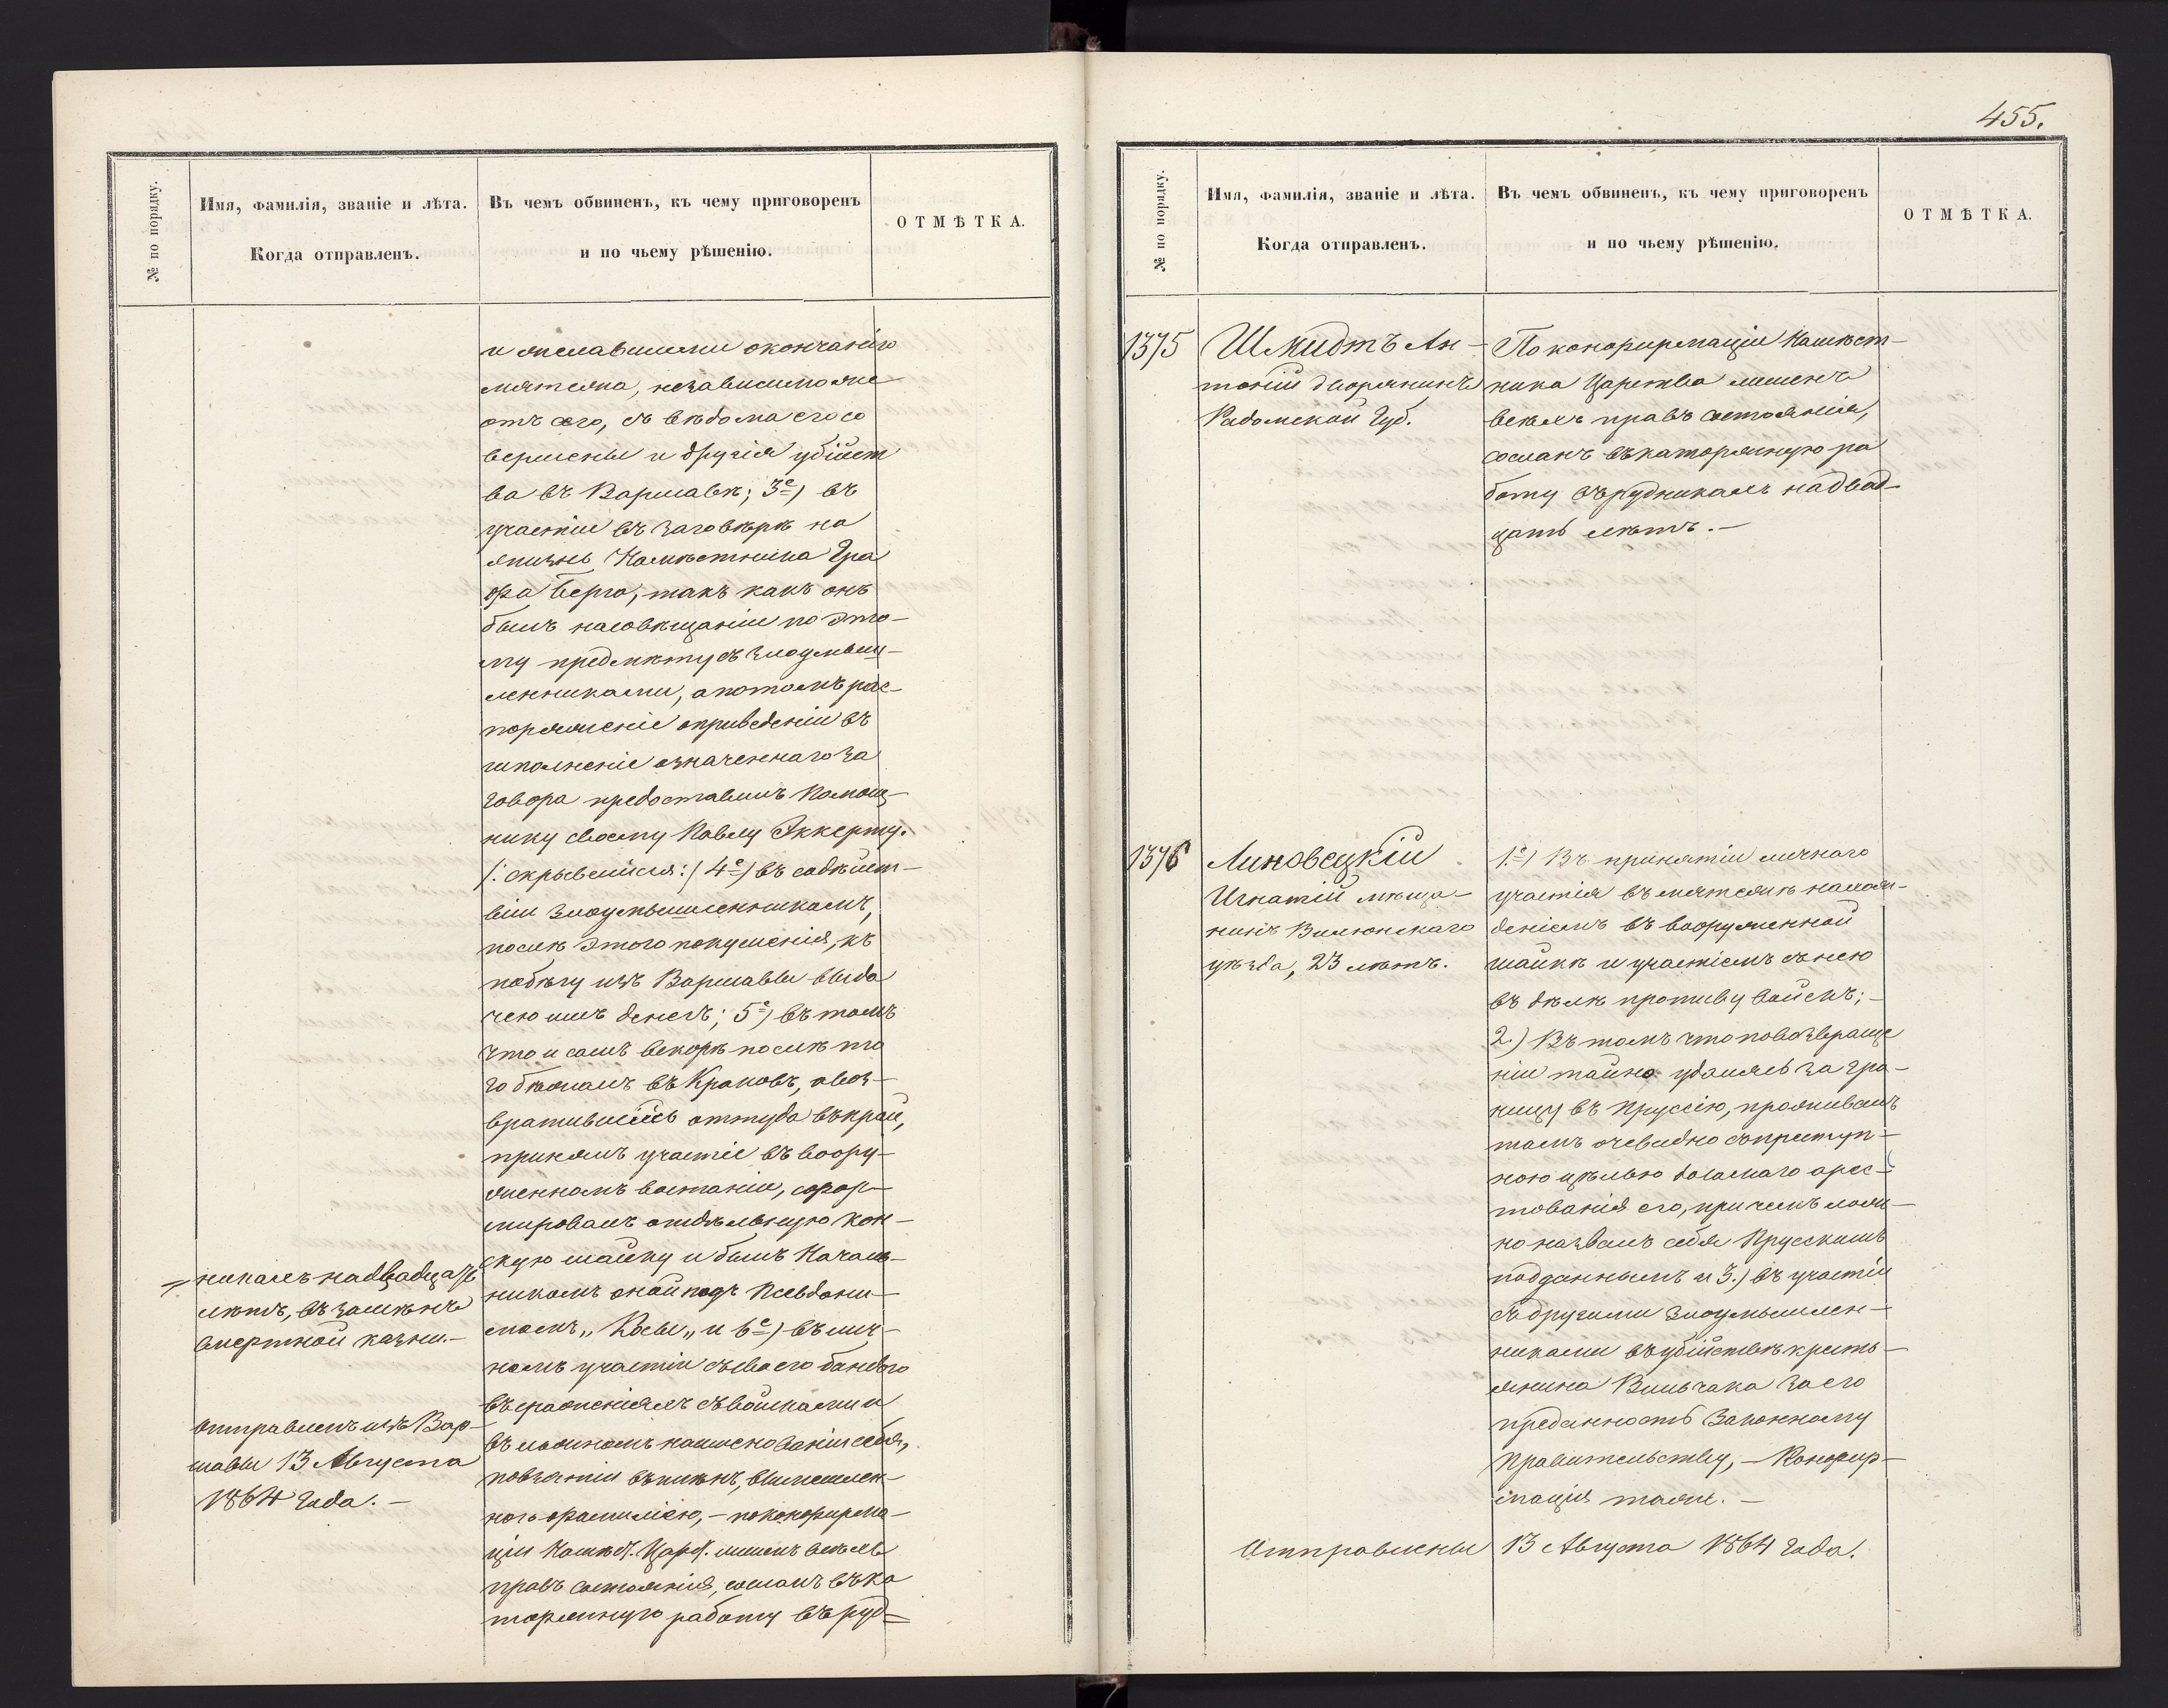 455.
№ по порядку.
Имя, фамилія, званіе и лѣта.
Когда отправленъ.
Въ чемъ обвиненъ, къ чему приговоренъ
и по чьему рѣшенію.
ОТМѢТКА.
и желавшими окончанія
мятежа, независимо же
отъ сего, съ вѣдома его со
вершены и другія убійст
ва въ Варшавѣ; 3е) въ
участіи въ заговорѣ на
жизнь Намѣстника Гра
фа Берга, такъ какъ онъ
былъ на совѣщаніи по это-
му предмѣту съ злоумыш-
ленниками, а потомъ рас-
поряженіе о приведеніи въ
исполненіе означеннаго за
говора предоставилъ Помощ-
нику своему Павлу Эккерту.
/: скрывшійся :/ 4е) въ содѣйст-
віи злоумышленникамъ,
послѣ этого покушенія, къ
побѣгу изъ Варшавы выда
чею имъ денегъ; 5е) въ томъ
что и самъ вскорѣ послѣ то
го бѣжалъ въ Краковъ, а воз-
вратившійсь оттуда въ край,
принялъ участіе въ воору-
женномъ востаніи, сфор-
мировалъ отдѣльную кон-
скую шайку и былъ Началь-
никомъ оной подъ Псевдони-
момъ „Косы„ и 6е) въ лич-
номъ участіи съ своею бандою
въ сраженіяхъ съ войсками и
въ ложномъ наименованіи себя,
по взятіи въ плѣнъ, вымышлен-
ною фамиліею, – по конфирма-
ціи Намѣст. Царст. лишенъ всѣхъ
правъ состоянія, сосланъ въ ка
торжную работу въ руд=
= никахъ на двадцать
лѣтъ, въ замѣнъ
смертной казни.–
Отправленъ изъ Вар-
шавы 13 Августа
1864 Года. –
№ по порядку.
Имя, фамилія, званіе и лѣта.
Когда отправленъ.
Въ чемъ обвиненъ, къ чему приговоренъ
и по чьему рѣшенію.
ОТМѢТКА.
1375
Шмидтъ Ан-
тоній дворянинъ
Радомской Губ.
По конфирмаціи Намѣст-
ника Царства лишенъ
всѣхъ правъ состоянія,
сосланъ въ каторжную ра
боту въ рудникахъ на двад-
цать лѣтъ. –
1376
Линовецкій
Игнатій мѣща-
нинъ Вилюнскаго
уѣзда, 23 лѣтъ.
1е) Въ принятіи личнаго
участія въ мятежѣ нахож-
деніемъ въ вооруженной
шайкѣ и участіемъ съ нею
въ дѣлѣ противу войскъ; –
2.) Въ томъ что по возвраще
ніи тайно удалясь за гра-
ницу въ Пруссію, проживалъ
тамъ очевидно съ преступ-
ною цѣлью до самаго арес-
тованія его, при чемъ лож-
но назвалъ себя Прусскимъ
подданнымъ и 3.) въ участіи
съ другими злоумышлен-
никами въ убійствѣ кресть-
янина Вильчака за его
преданность Законному
Правительству, – Конфир-
мація таже. –
Отправлены 13 Августа 1864 Года.